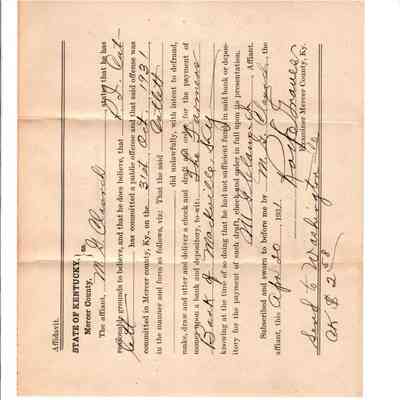 Affidavit.
STATE OF KENTUCKY,
Mercer County, } ss.
The affiant, M. G. Claunch, stating that he has
reasonable grounds to believe, and that he does believe, that
has committed a public offense and that said offense was
committed in Mercer county, Ky., on the 31st Oct. 1931
in the manner and form as follows, viz: That the said
did unlawfully, with intent to defraud,
make, draw and utter and deliver a check and draft and order for the payment of
money upon a bank and depository, to-wit: The Farmers
Bank of Mackville, Ky.
knowing at the time of so doing that he had not sufficient funds in said bank or depos-
itory for the payment of such draft, check and order in full upon its presentation.
M G Claunch Affiant.
Subscribed and sworn to before me by M. G. Claunch, the
affiant, this Apr 20 1931.
Graves
Examiner Mercer County, Ky.
Send to Washington Co